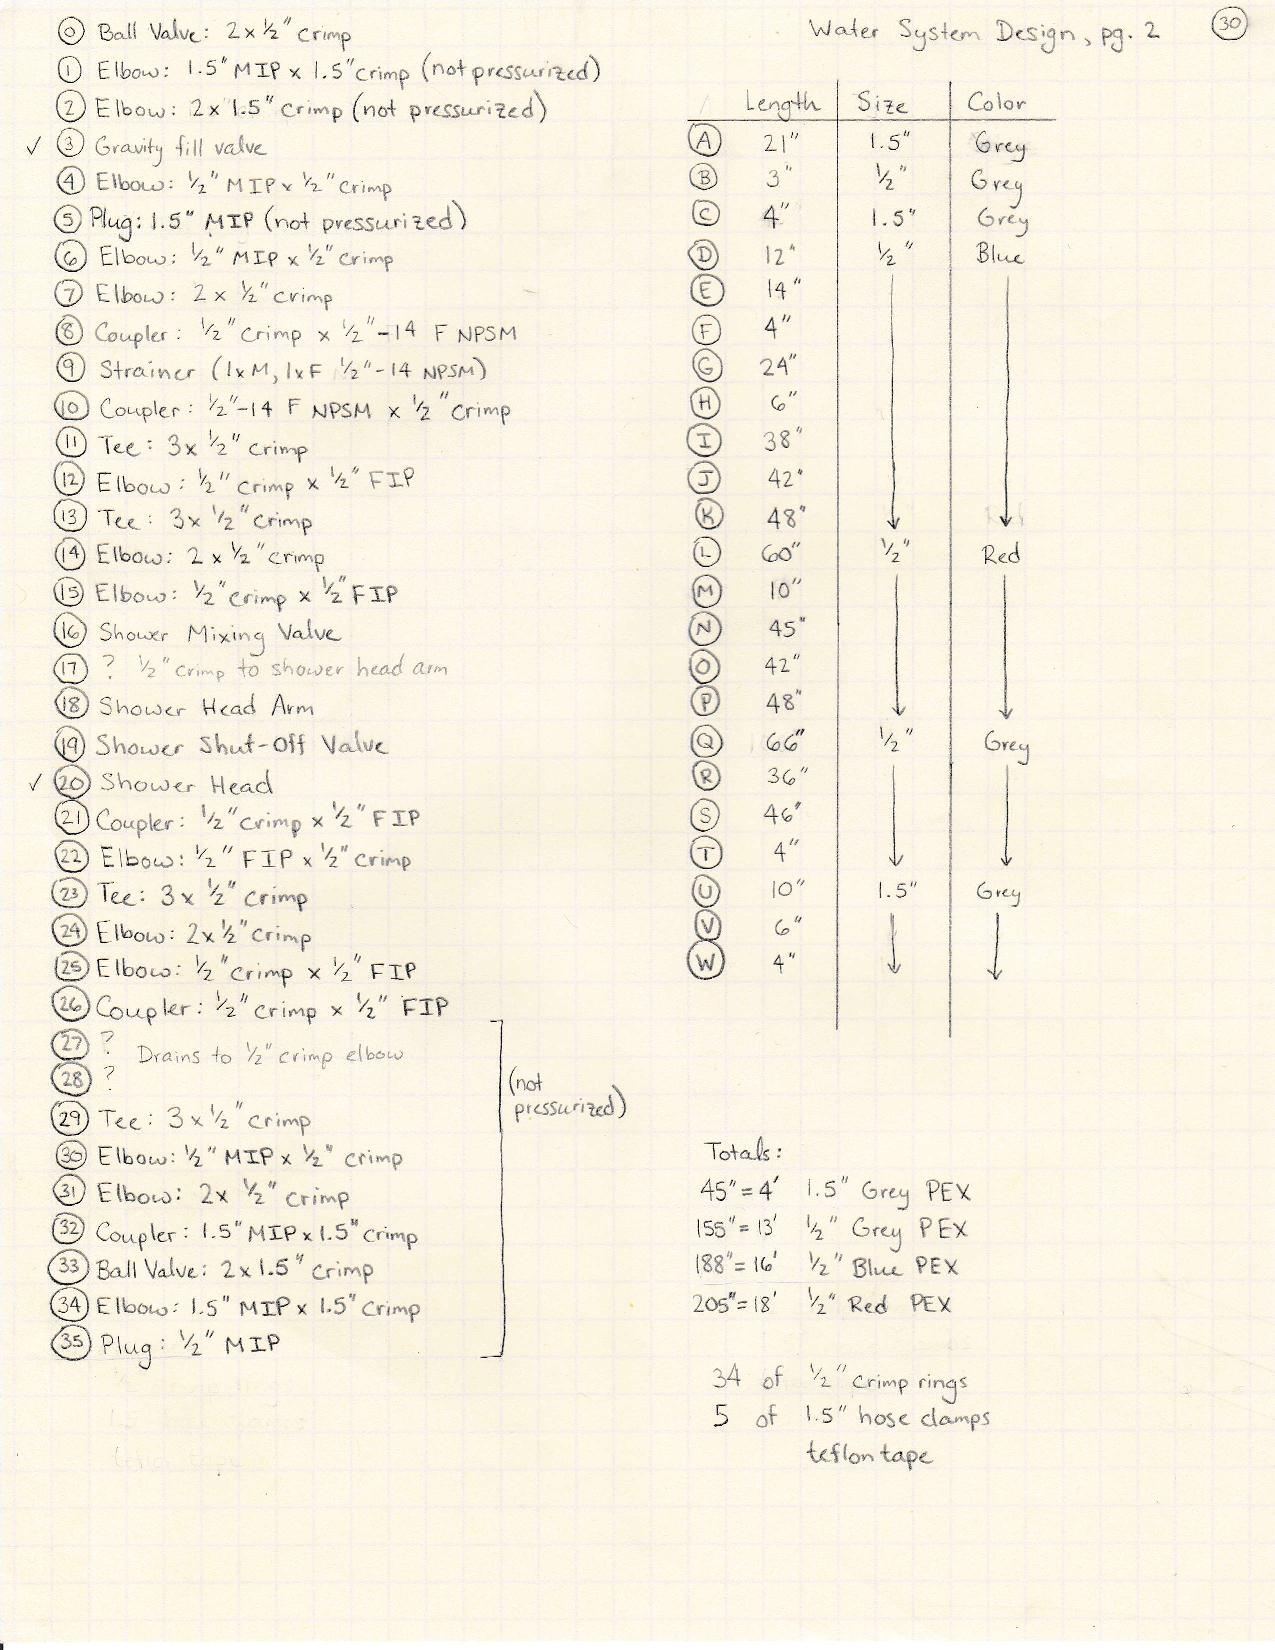 Water System Design, pg. 2
30
0 Ball Valve: 2x ½" crimp
1 Elbow: 1.5" MIP x 1.5" crimp (not pressurized)
2 Elbow: 2x 1.5" crimp (not pressurized)
✓ 3 Gravity fill valve
4 Elbow: ½" MIP x ½" crimp
5 Plug: 1.5" MIP (not pressurized)
6 Elbow: ½" MIP x ½" crimp
7 Elbow: 2x ½" crimp
8 Coupler: ½" crimp x ½"-14 F NPSM
9 Strainer (1xM, 1xF ½"-14 NPSM)
10 Coupler: ½"-14 F NPSM x ½" crimp
11 Tee: 3x ½" crimp
12 Elbow: ½" crimp x ½" FIP
13 Tee: 3x ½" crimp
14 Elbow: 2x ½" crimp
15 Elbow: ½" crimp x ½" FIP
16 Shower Mixing Valve
17 ? ½" crimp to shower head arm
18 Shower Head Arm
19 Shower Shut-Off Valve
✓ 20 Shower Head
21 Coupler: ½" crimp x ½" FIP
22 Elbow: ½" FIP x ½" crimp
23 Tee: 3x ½" crimp
24 Elbow: 2x ½" crimp
25 Elbow: ½" crimp x ½" FIP
26 Coupler: ½" crimp x ½" FIP
27 ?
Drains to ½" crimp elbow
28 ?
29 Tee: 3x ½" crimp
30 Elbow: ½" MIP x ½" crimp
31 Elbow: 2x ½" crimp
32 Coupler: 1.5" MIP x 1.5" crimp
33 Ball Valve: 2x 1.5" crimp
34 Elbow: 1.5" MIP x 1.5" crimp
35 Plug: ½" MIP
(not
pressurized)
Length Size Color
A 21" 1.5" Grey
B 3" ½" Grey
C 4" 1.5" Grey
D 12" ½" Blue
E 14"
F 4"
G 24"
H 6"
I 38"
J 42"
K 48"
L 60" ½" Red
M 10"
N 45"
O 42"
P 48"
Q 66" ½" Grey
R 36"
S 46"
T 4"
U 10" 1.5" Grey
V 6"
W 4"
Totals:
45" = 4' 1.5" Grey PEX
155" = 13' ½" Grey PEX
188" = 16' ½" Blue PEX
205" = 18' ½" Red PEX
34 of ½" crimp rings
5 of 1.5" hose clamps
teflon tape